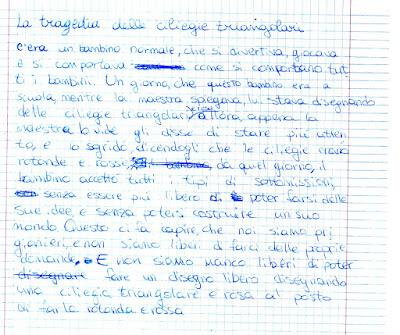 La tragedia delle ciliegie triangolari
c'era un bambino normale, che si divertiva, giocava
e si comportava come si comportano tut
ti i bambini. Un giorno, che questo bambino era a
scuola, mentre la maestra spiegava, lui stava disegnando
delle ciliegie triangolari allora, appena la
maestra lo vide gli disse di stare più atten
to, e lo sgridò, dicendogli che le ciliegie erano
rotonde e rosse, da quel giorno, il
bambino accettò tutti i tipi di sottomissioni,
senza essere più libero di poter farsi delle
sue idee, e senza potersi costruire un suo
mondo. Questo ci fa capire, che noi siamo pri
gionieri, e non siamo liberi di farci delle proprie
domande. E non siamo manco liberi di poter
fare un disegno libero disegnando
una ciliegia triangolare e rosa al posto
di farla rotonda e rossa